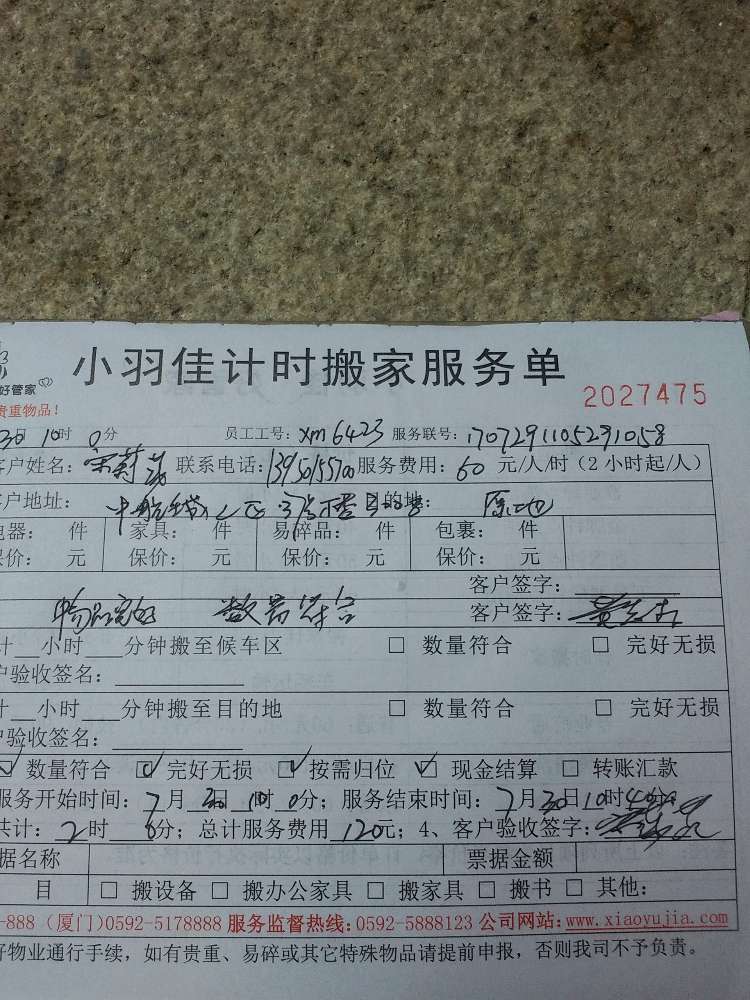 小羽佳计时搬家服务单
好管家
2027475
贵重物品!
30日 10时 0分 员工工号: xm6423 服务联号: 1707291105291058
客户姓名: 联系电话: 服务费用: 60 元/人/时(2小时起/人)
客户地址: 目的地: 原地
电器: 件 家具: 件 易碎品: 件 包裹: 件
保价: 元 保价: 元 保价: 元 保价: 元
客户签字:
物品完好 数量符合 客户签字:
计 小时 分钟搬至候车区 □ 数量符合 □ 完好无损
户验收签名:
计 小时 分钟搬至目的地 □ 数量符合 □ 完好无损
户验收签名:
☑ 数量符合 ☑ 完好无损 ☑ 按需归位 ☑ 现金结算 □ 转账汇款
服务开始时间: 7月30日10时0分; 服务结束时间: 7月30日10时40分
共计: 2时 0分; 总计服务费用 120元; 4、客户验收签字:
据名称 票据金额
目 □ 搬设备 □ 搬办公家具 □ 搬家具 □ 搬书 □ 其他:
-888 (厦门)0592-5178888 服务监督热线:0592-5888123 公司网站:www.xiaoyujia.com
好物业通行手续, 如有贵重、易碎或其它特殊物品请提前申报, 否则我司不予负责。